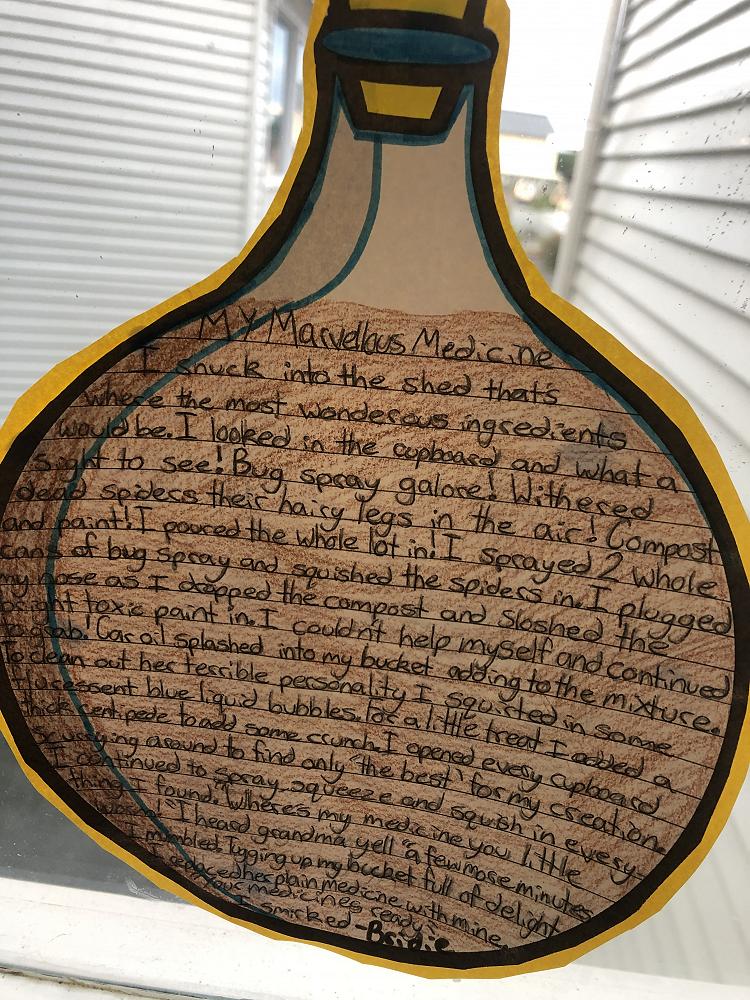 My Marvellous Medicine
I snuck into the shed that's
where the most wonderous ingredients
would be. I looked in the cupboard and what a
sight to see! Bug spray galore! Withered
dead spiders their hairy legs in the air! Compost
and paint! I poured the whole lot in! I sprayed 2 whole
cans of bug spray and squished the spiders in. I plugged
my nose as I dropped the compost and sloshed the
bright toxic paint in. I couldn't help myself and continued
to grab! Car oil splashed into my bucket adding to the mixture.
To clean out her terrible personality I squirted in some
fluressent blue liquid bubbles. for a little treat I added a
thick centipede to add some crunch. I opened every cupboard
scurrying around to find only "the best" for my creation.
I continued to spray squeeze and squish in every-
thing I found. "Where's my medicine you little
I heard grandma yell "a few more minutes
I mumbled lugging up my bucket full of delight
I replaced her plain medicine with mine.
"Your medicines ready"
I smirked -Bridie